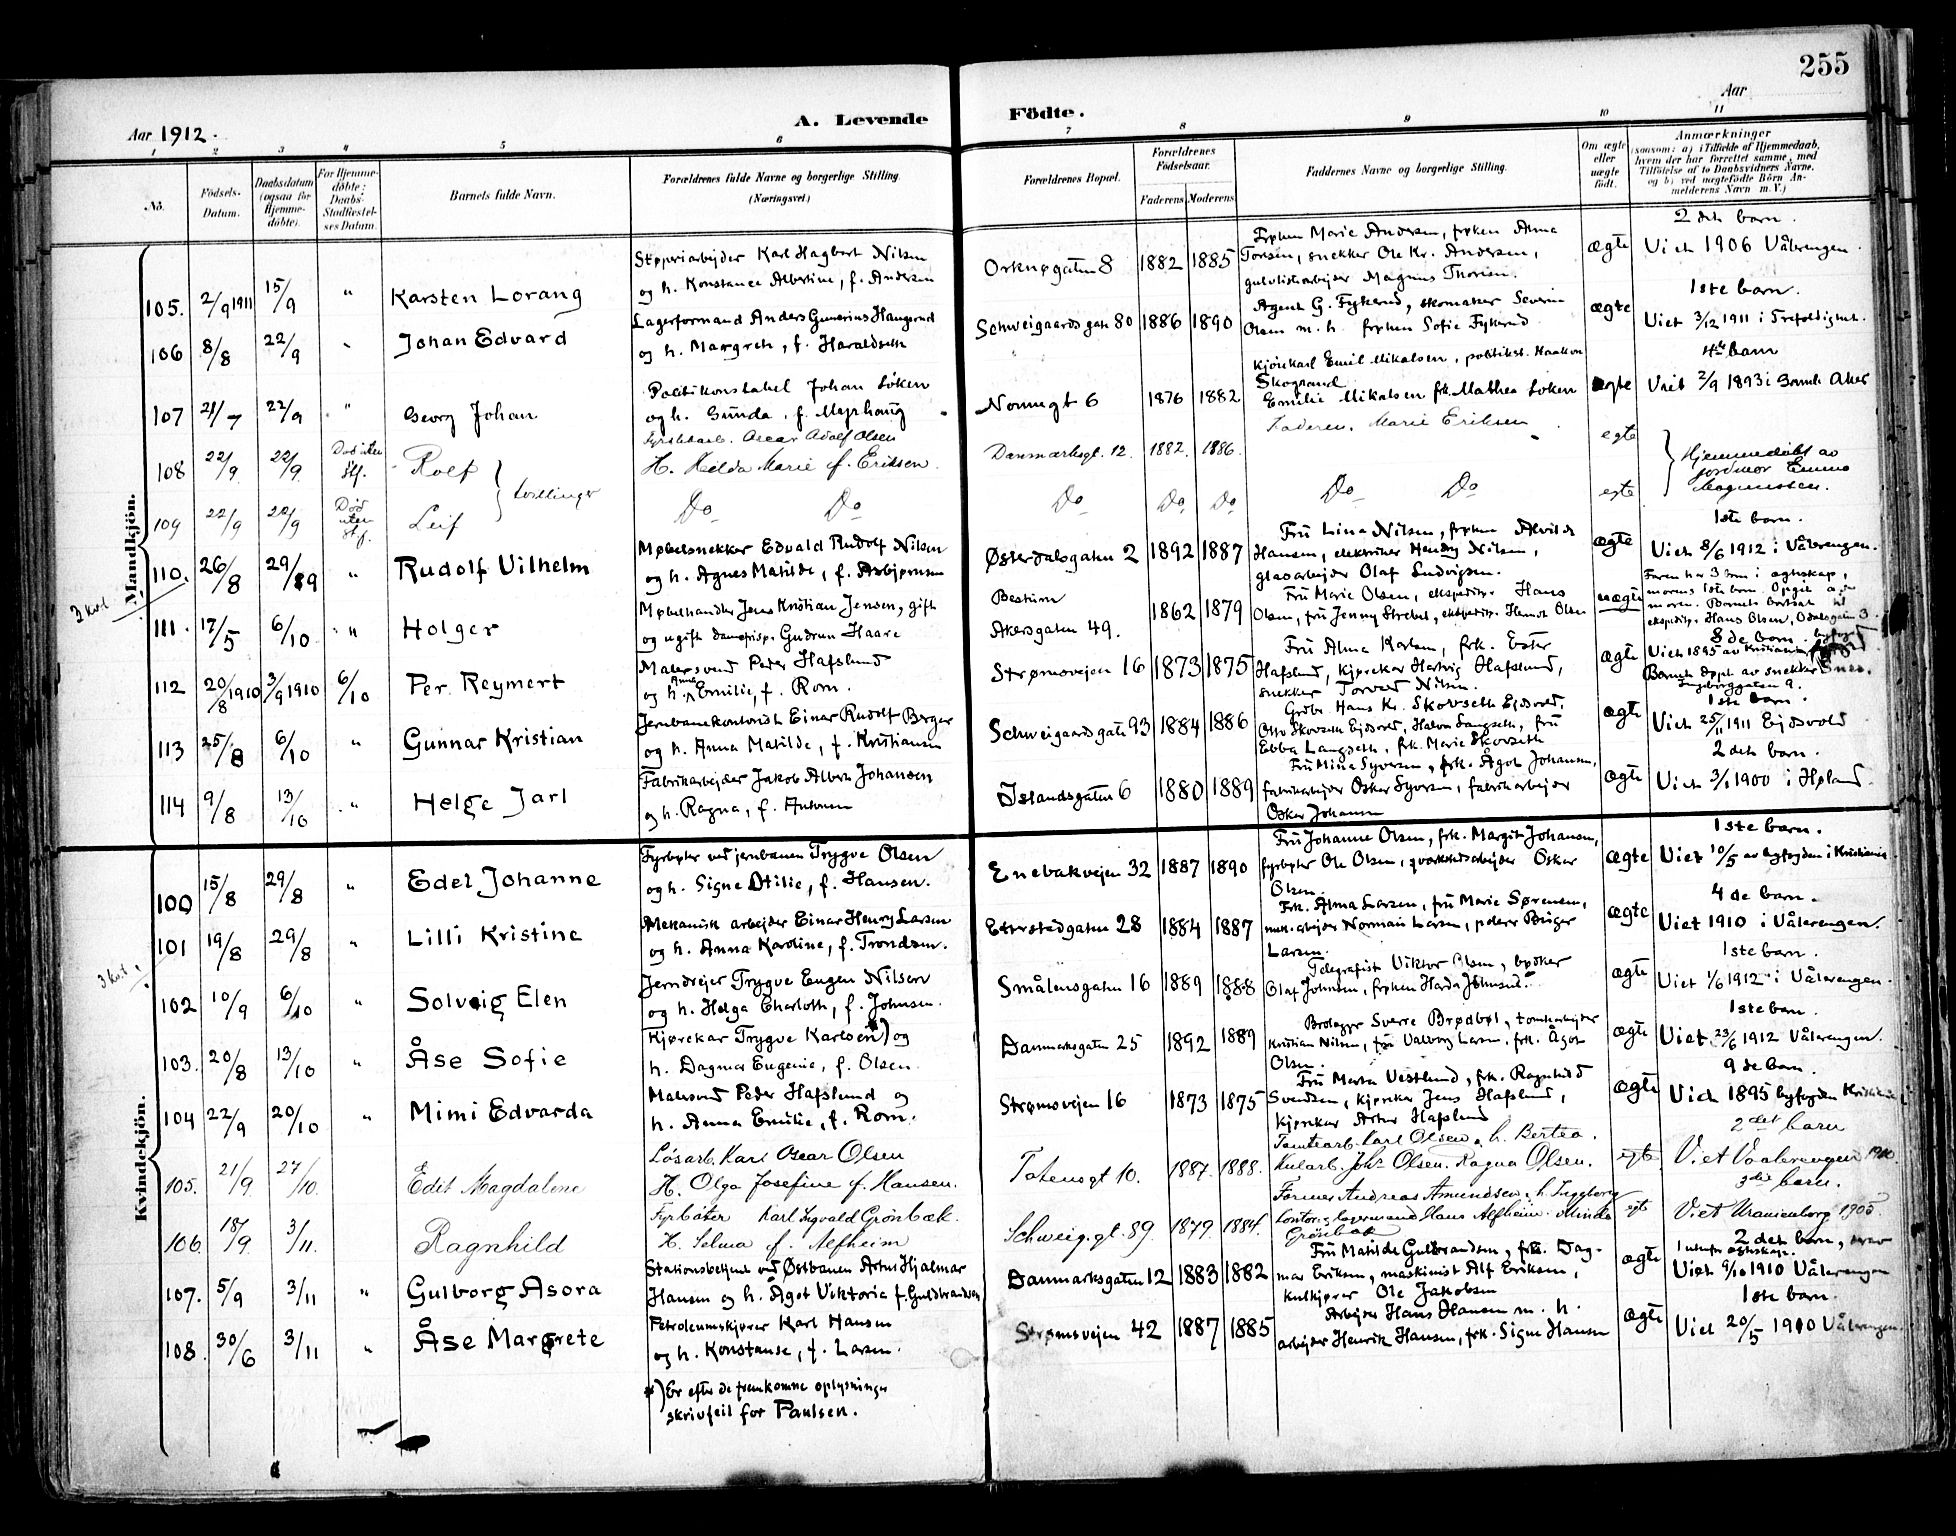 255
Aar 1912.
A. Levende Födte.
Aar
1 2 3 4 5 6 7 8 9 10 11
No.
Födsels-Datum.
Daabsdatum (ogsaa for Hjemmedöbte).
For Hjemmedöbte: Daabs-Stadfæstelses Datum.
Barnets fulde Navn.
Forældrenes fulde Navne og borgerlige Stilling. (Næringsvei)
Forældrenes Bopæl.
Forældrenes Födselsaar.
Faderens Moderens
Faddernes Navne og borgerlige Stilling.
Om ægte eller uægte födt.
Anmærkninger
(saasom: a) i Tilfælde af Hjemmedaab, hvem der har forrettet samme, med Tilföielse af to Daabsvidners Navne, og b) ved uægtefödte Börn Anmelderens Navn m. V.)
Mandkjön.
105. 2/9 1911 15/9 " Karsten Lorang
Støperiarbejder Karl Hagbart Nilsen
og h. Konstance Albertine, f. Andersen
Orknøgaten 8 1882 1885
Frøken Marie Andersen, frøken Alma
Torsen, snekker Ole Kr. Andersen,
gulvlistarbejder Magnus Thorsen.
ægte
2 det barn.
Viet 1906 Vålerengen.
106 8/8 22/9 " Johan Edvard
Lagerformand Anders Gunerius Haugerud
og h. Margrete, f. Haraldseth
Schweigaardsgate 80 1886 1890
Agent G. Fykerud, skomaker Severin
Olsen m. h. frøken Sofie Fykerud
ægte
1ste barn.
Viet 3/12 1911 i Trefoldighet.
107 21/7 22/9 " Georg Johan
Politikonstabel Johan Løken
og h. Gunda, f. Mejrhaug
Normgt 6 1876 1882
Kjørekarl Emil Mikalsen, politikst. Haakon
Skogrand
Emilie Mikalsen frk. Mathea Løken
ægte
4de barn
Viet 2/9 1893 i Gamle Aker
108 22/9 22/9 Død uten stf. Rolf } tvillinger
Fyrstikarb. Oscar Adolf Olsen
H. Hilda Marie f. Eriksen.
Danmarksgt. 12. 1882. 1886.
Faderen. Marie Eriksen
egte
Hjemmedøbt av
jordmor Emma
Magnussen.
109 22/9 22/9 Død uten stf. Leif
Do Do
Do Do Do
Do Do
egte
110. 26/8 29/9 " Rudolf Vilhelm
Møbelsnekker Edvald Rudolf Nilsen
og h. Agnes Matilde, f. Asbjørnsen
Østerdalsgaten 2 1892 1887
Fru Lina Nilsen, frøken Alvilde
Hansen, elektriker Henry Nilsen,
glasarbejder Olaf Ludvigsen.
ægte
1ste barn.
Viet 8/6 1912 i Vålerengen.
3 kvt
111. 17/5 6/10 " Holger
Møbelhandler Jens Kristian Jensen, gift
og ugift damefrisp. Gudrun Haare
Bestum
Akersgaten 49. 1862 1879
Fru Marie Olsen, ekspeditr. Hans
Olsen, fru Jenny Strebel, ekspeditr. Henst Olsen
uægte
Faren har 3 brn i ægteskap,
morens 1ste barn. Opgit av
moren. Barnets bortsat til
ekspeditr. Hans Olsen, Odalsgaten 3
112 20/8 1910 3/9 1910 6/10 Per Reymert
Malersvend Peder Hafslund
og h. Anna Emilie, f. Rom.
Strømsvejen 16 1873 1875
Fru Alma Karlsen, frk. Ester
Hafslund, kjørekar Hartvig Hafslund,
snekker Torvald Nilsen.
ægte
8 de barn.
Viet 1895 av Kristiania byfoged
Barnet døpt av snekker
Ingeborggaten 9.
113 25/8 6/10 " Gunnar Kristian
Jernbanekontorist Einar Rudolf Berger
og h. Anna Matilde, f. Kristiansen
Schweigaardsgate 93 1884 1886
Grdbr. Hans Kr. Skovseth Ejdsvold,
Otto Skovseth Ejdsvold, Halvor Langseth, fru
Ebba Langseth, frk. Marie Skovseth
ægte
1ste barn.
Viet 25/11 1911 Ejdsvold
114 9/8 13/10 " Helge Jarl
Fabrikarbejder Jakob Albert Johansen
og h. Ragna, f. Antonsen
Islandsgaten 6 1880 1889
Fru Mina Syversen, frk. Ågot Johansen,
fabrikarbejder Oskar Syversen, fabrikarbejder
Oskar Johansen
ægte
2 det barn.
Viet 3/1 1900 i Høland.
Kvindekjön.
100 15/8 29/8 " Edel Johanne
Fyrbøter ved jernbanen Trygve Olsen
og h. Signe Otilie, f. Hansen.
Enebakvejen 32 1887 1890
Fru Johanne Olsen, frk. Margit Johansen,
fyrbøter Ole Olsen, gværkstedsarbejder Oskar
Olsen.
ægte
1ste barn.
Viet 10/5 av byfogden i Kristiania
101 19/8 29/8 " Lilli Kristine
Mekanisk arbejder Einar Henry Larsen
og h. Anna Karoline, f. Trondsen.
Etterstedgaten 28 1884 1887
Frk. Alma Larsen, fru Marie Sørensen,
mek. arbejder Norman Larsen, polerer Birger
Larsen.
ægte
4 de barn.
Viet 1910 i Vålerengen.
3 kvt
102 10/9 6/10 " Solveig Elen
Jerndrejer Trygve Eugen Nilsen
og h. Helga Charlotte, f. Johnsen.
Smålensgaten 16 1889 1888
Telegrafist Viktor Olsen, bøsker
Olaf Johnsen, frøken Harda Johnsen.
ægte
1ste barn.
Viet 1/6 1912 i Vålerengen.
103. 20/8 13/10 " Åse Sofie
Kjørekar Trygve Karlsen *) og
h. Dagmar Eugenie, f. Olsen.
Danmarksgaten 25 1892 1889
Brolægger Sverre Brødbøl, tomtearbejder
Kristian Nilsen, fru Valborg Larsen, frk. Ågot
Olsen.
ægte
1ste barn.
Viet 23/6 1912 Vålerengen.
104 22/9 20/10 " Mimi Edvarda
Malersvend Peder Hafslund og
h. Anna Emilie, f. Rom.
Strømsvejen 16 1873 1875
Fru Marta Vestlund, frk. Ragnhild
Svendsen, kjørekar Jens Hafslund,
kjørekar Artur Hafslund
ægte
9 de barn.
Viet 1895 byfogden Kristiania
105. 21/9. 27/10. Edit Magdalene
Løsarb. Karl Oscar Olsen
H. Olga Josefine f. Hansen.
Totensgt 10. 1887. 1888.
Tomtearb. Karl Olsen o. h. Bertea.
Kularb. Johs Olsen. Ragna Olsen.
egte
2det barn
Viet Vaalerengen 1910.
106. 18/9. 3/11. Ragnhild
Fyrbøter Karl Ingvald Grönbæk.
H. Selma f. Alfheim
Schweig.gt. 89. 1879. 1884.
Former Andreas Amundsen o. h. Ingeborg
kontor og lagermand Hans Alfheim. Minda
Grönbæk
egte
3die barn.
Viet Uranienborg 1905.
107. 5/9 3/11 " Gulborg Asora
Stationsbetjent ved Østbanen Artur Hjalmar
Hansen og h. Ågot Viktoria f. Guldbrandsen
Danmarksgaten 12 1883 1882
Fru Matilde Gulbrandsen, frk. Dag-
mar Eriksen, maskinist Alf Eriksen,
kulkjører Ole Jakobsen
ægte
2 det barn,
1 utenfor ægteskap.
Viet 9/10 1910 Vålerengen
108. 30/6 3/11 " Åse Margrete
Petroleumskjører Karl Hansen
og h. Konstanse, f. Larsen.
Strømsvejen 42 1887 1885
Arbejder Hans Hansen m. h.
arbejder Henrik Hansen, frk. Signe Hansen
ægte
1ste barn.
Viet 20/5 1910 Vålerengen.
*) Er efter de fremkomne oplysninger
skrivfeil for Paulsen.